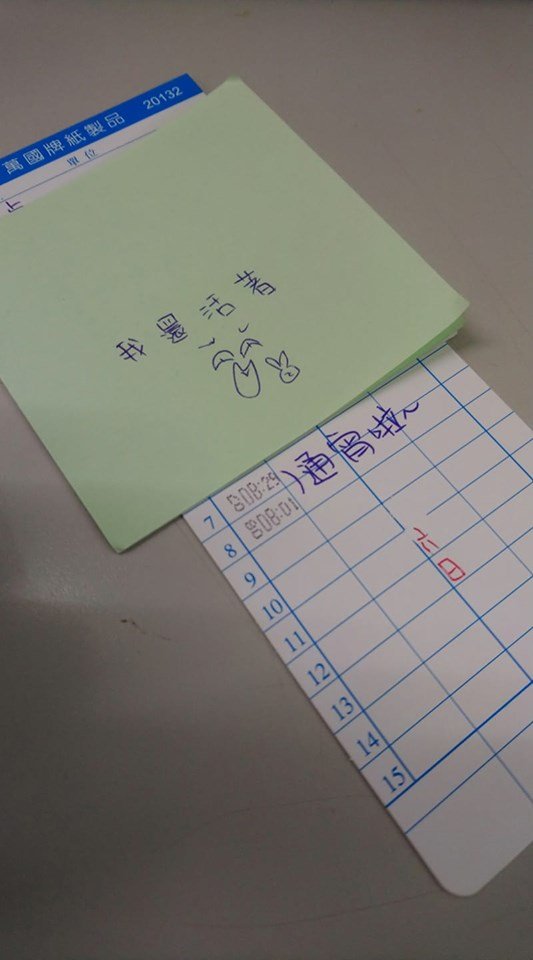 萬國牌紙製品 20132
單位
我還活著
7 08:29 通宵啦~
8 08:01
9
10 六
11 日
12
13
14
15